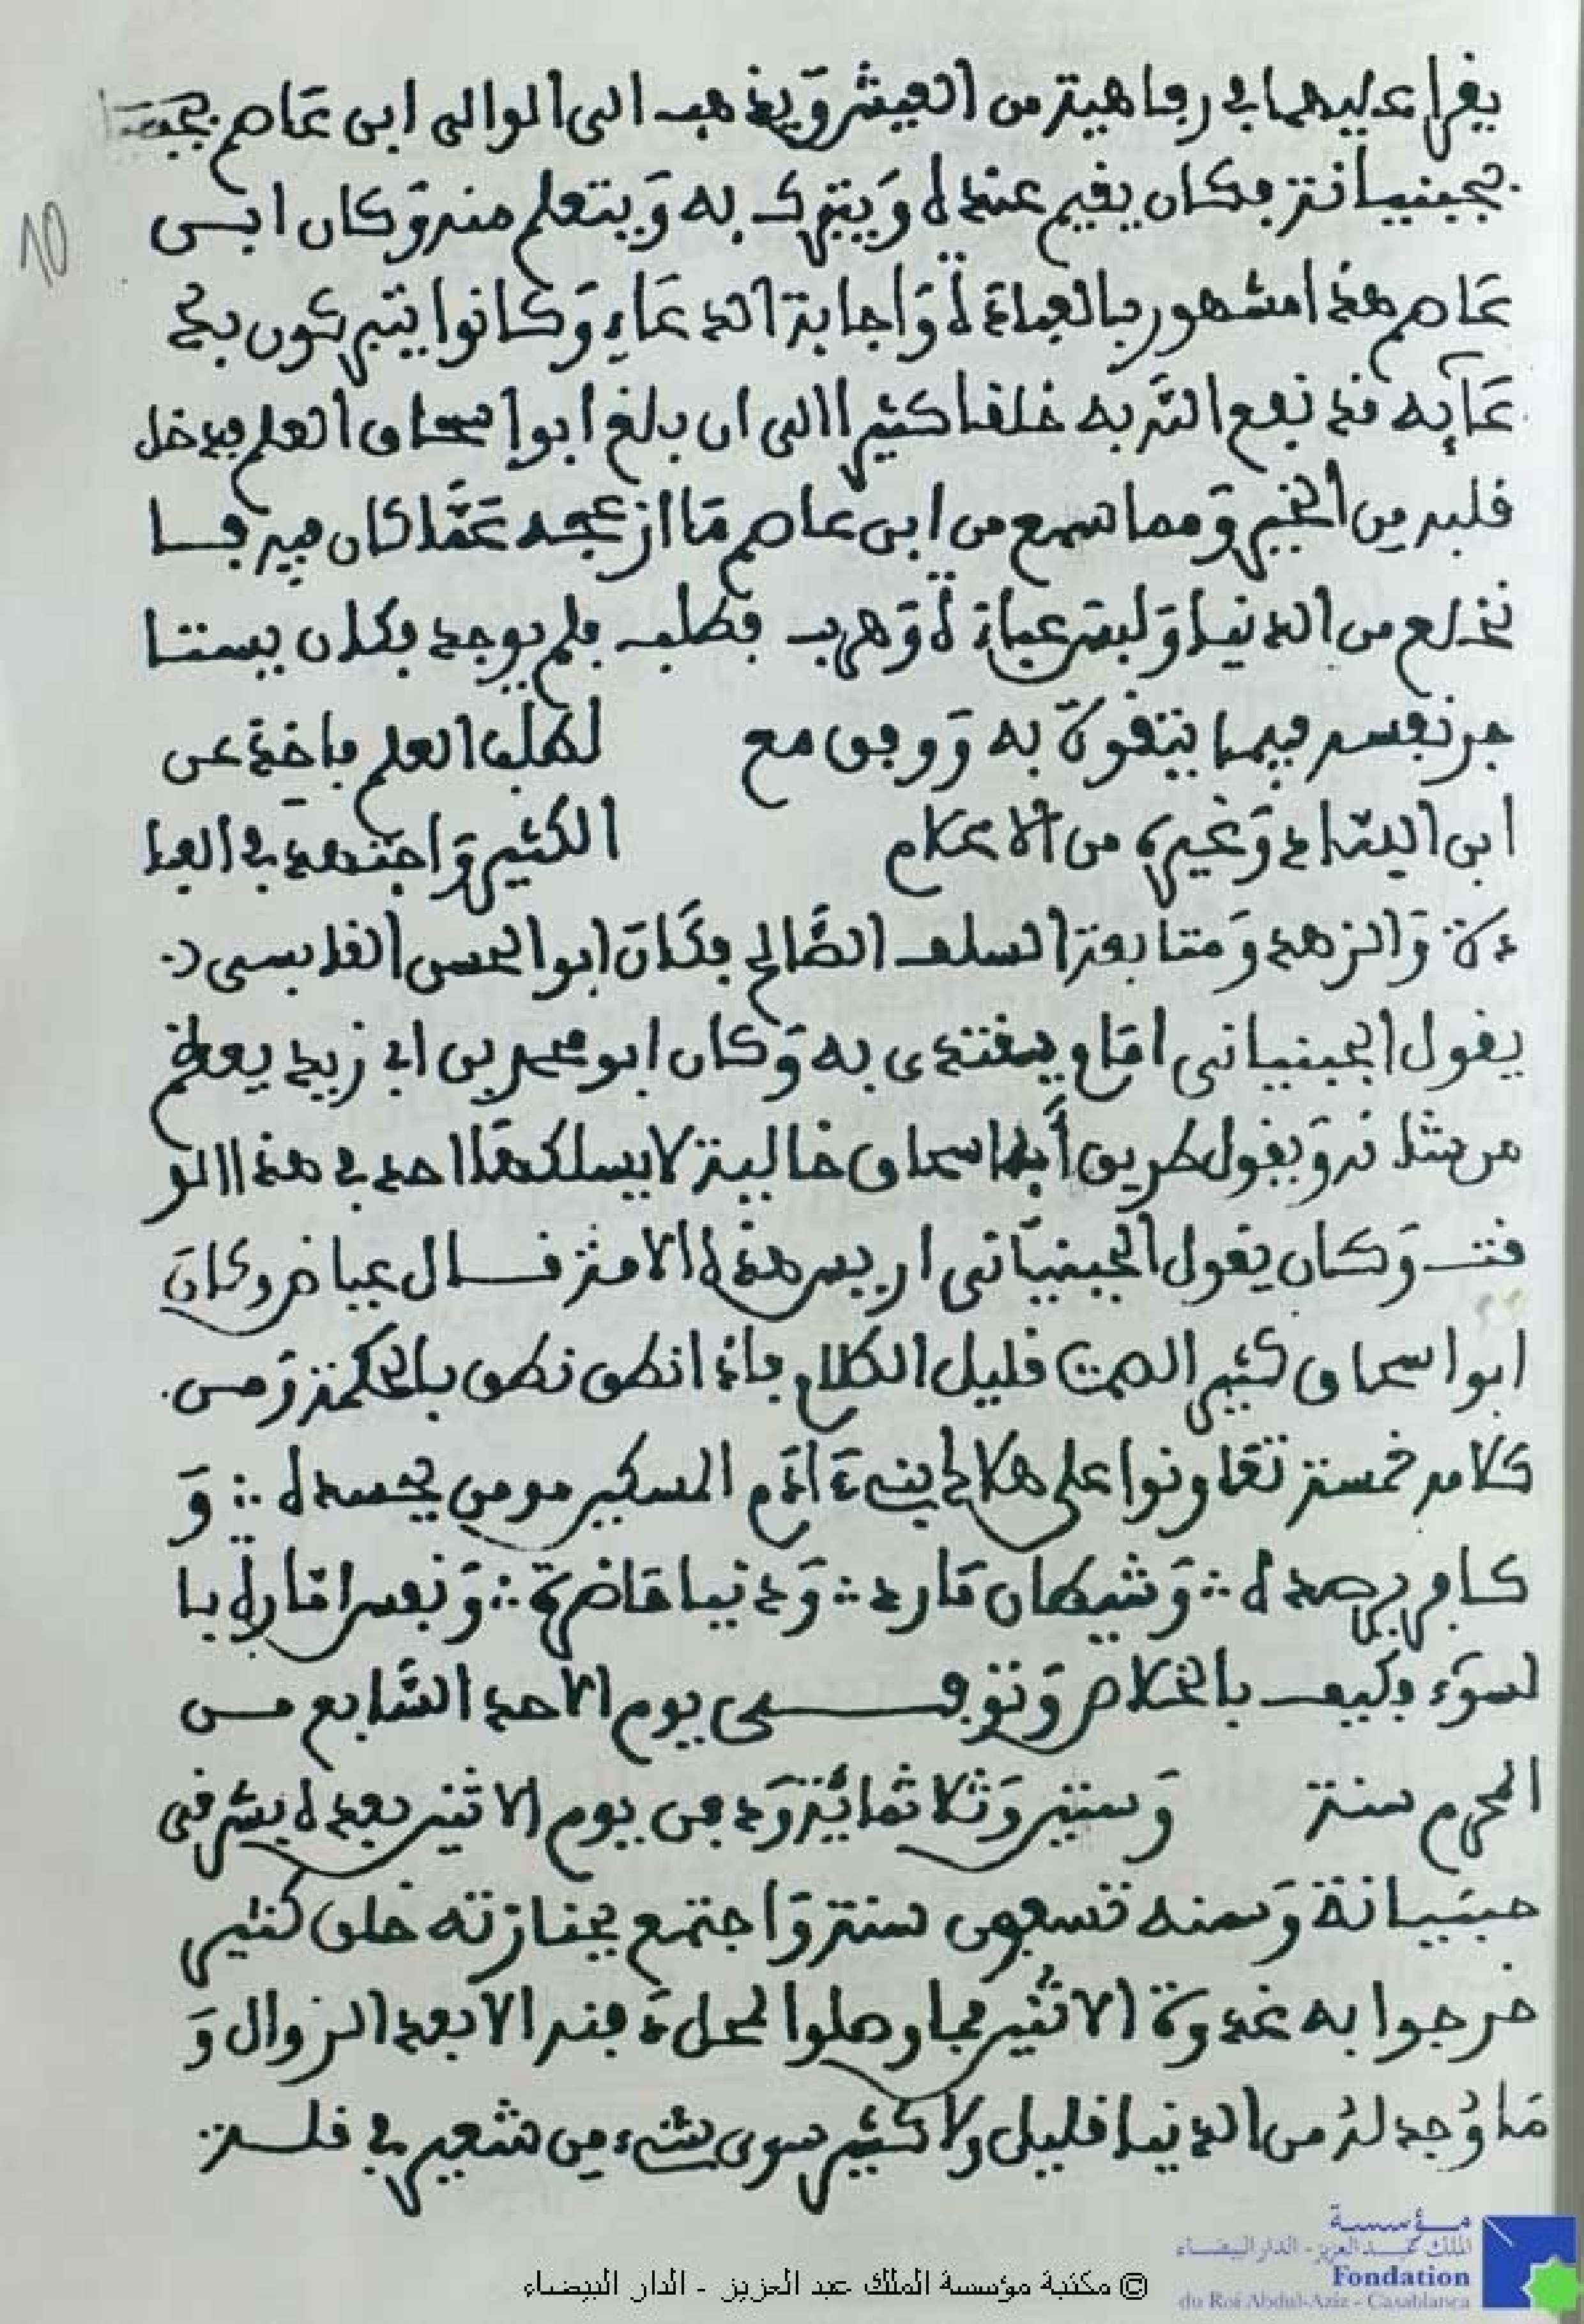 يقرا عليهما في رفاهية من العيش وَيذهب الى الوالى ابى عَاصم
بجبنيانة فكان يقيم عنده وَيتبرك به وَيتعلم منه وَكان ابى
عَاصم هذا مشهور بالعبادَة وَاجابة الدعَاءِ وَكانوا يتبركون بد
عَآيِه قد نفع الله به خلقا كثيرا الى ان بلغ ابوا سحاق العلم فدخل
قلبه من الخير وَمما سمع من ابى عَاصم مَا ازعجه عَمَّا كان فيه فا
نخلع من الدنيا وَلبس عباءَة وَهرب فطلب فلم يوجد فكان يستا
جر نفسه فيما يتقوت به وَوفق مع لطلب العلم فاخذ عن
ابى اللباد وَغيره من الاعلام الكثير وَاجتهد في العبا
دة وَالزهد وَمتابعة السلف الصَّالح فكَانَ ابوا الحسن القابسى
يقول الجبنيانى امَام يقتدى به وَكان ابو محمد بن ابي زيد يعظم
من شانه وَيقول طريق أبا اسحاق خالية لا يسلكها احد في هذا الو
قت وَكان يقول الجبنيَانى اويس هذه الامة قال عياض وكانَ
ابوا سحاق كثير الصمت قليل الكلام فاذا نطق نطق بالحكمة وَمن
كلامه خمسة تعَاونوا على هلاك ابن ءَادَم المسكين مومن يحسده ∴ وَ
كافر يرصده ∴ وَشيطان مَارد ∴ وَدنيا حَاضرة ∴ وَنفس امَارة با
لسوَء فكيف بالخلاص وَتوفـــى يوم الاحد السَّابع من
المحرم سنة وَستين وَثلاثمائة وَدفن يوم الاثنين بعده بشرقى
جبنيانة وَسنه تسعون سنة وَاجتمع بجنازته خلق كثير
خرجوا به غدوة الاثنين فما وصلوا لمحل دَفنه الا بعد الزوال وَ
مَا وُجد لهُ من الدنيا قليل ولا كثير سوى شىء من شعير في قلة
10
مؤسسة
الملك عبد العزيز - الدار البيضاء
Fondation
du Roi Abdul-Aziz - Casablanca
© مكتبة مؤسسة الملك عبد العزيز - الدار البيضاء